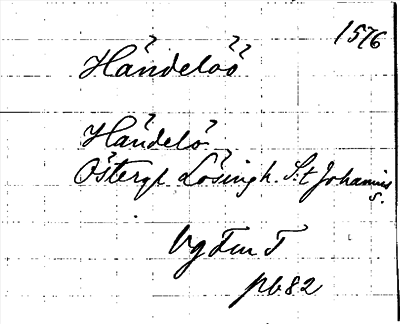 1576
Händelöö
Händelö
Östergl Lösing h. S:t Johannis
s.
Vg Fm T
pb 82